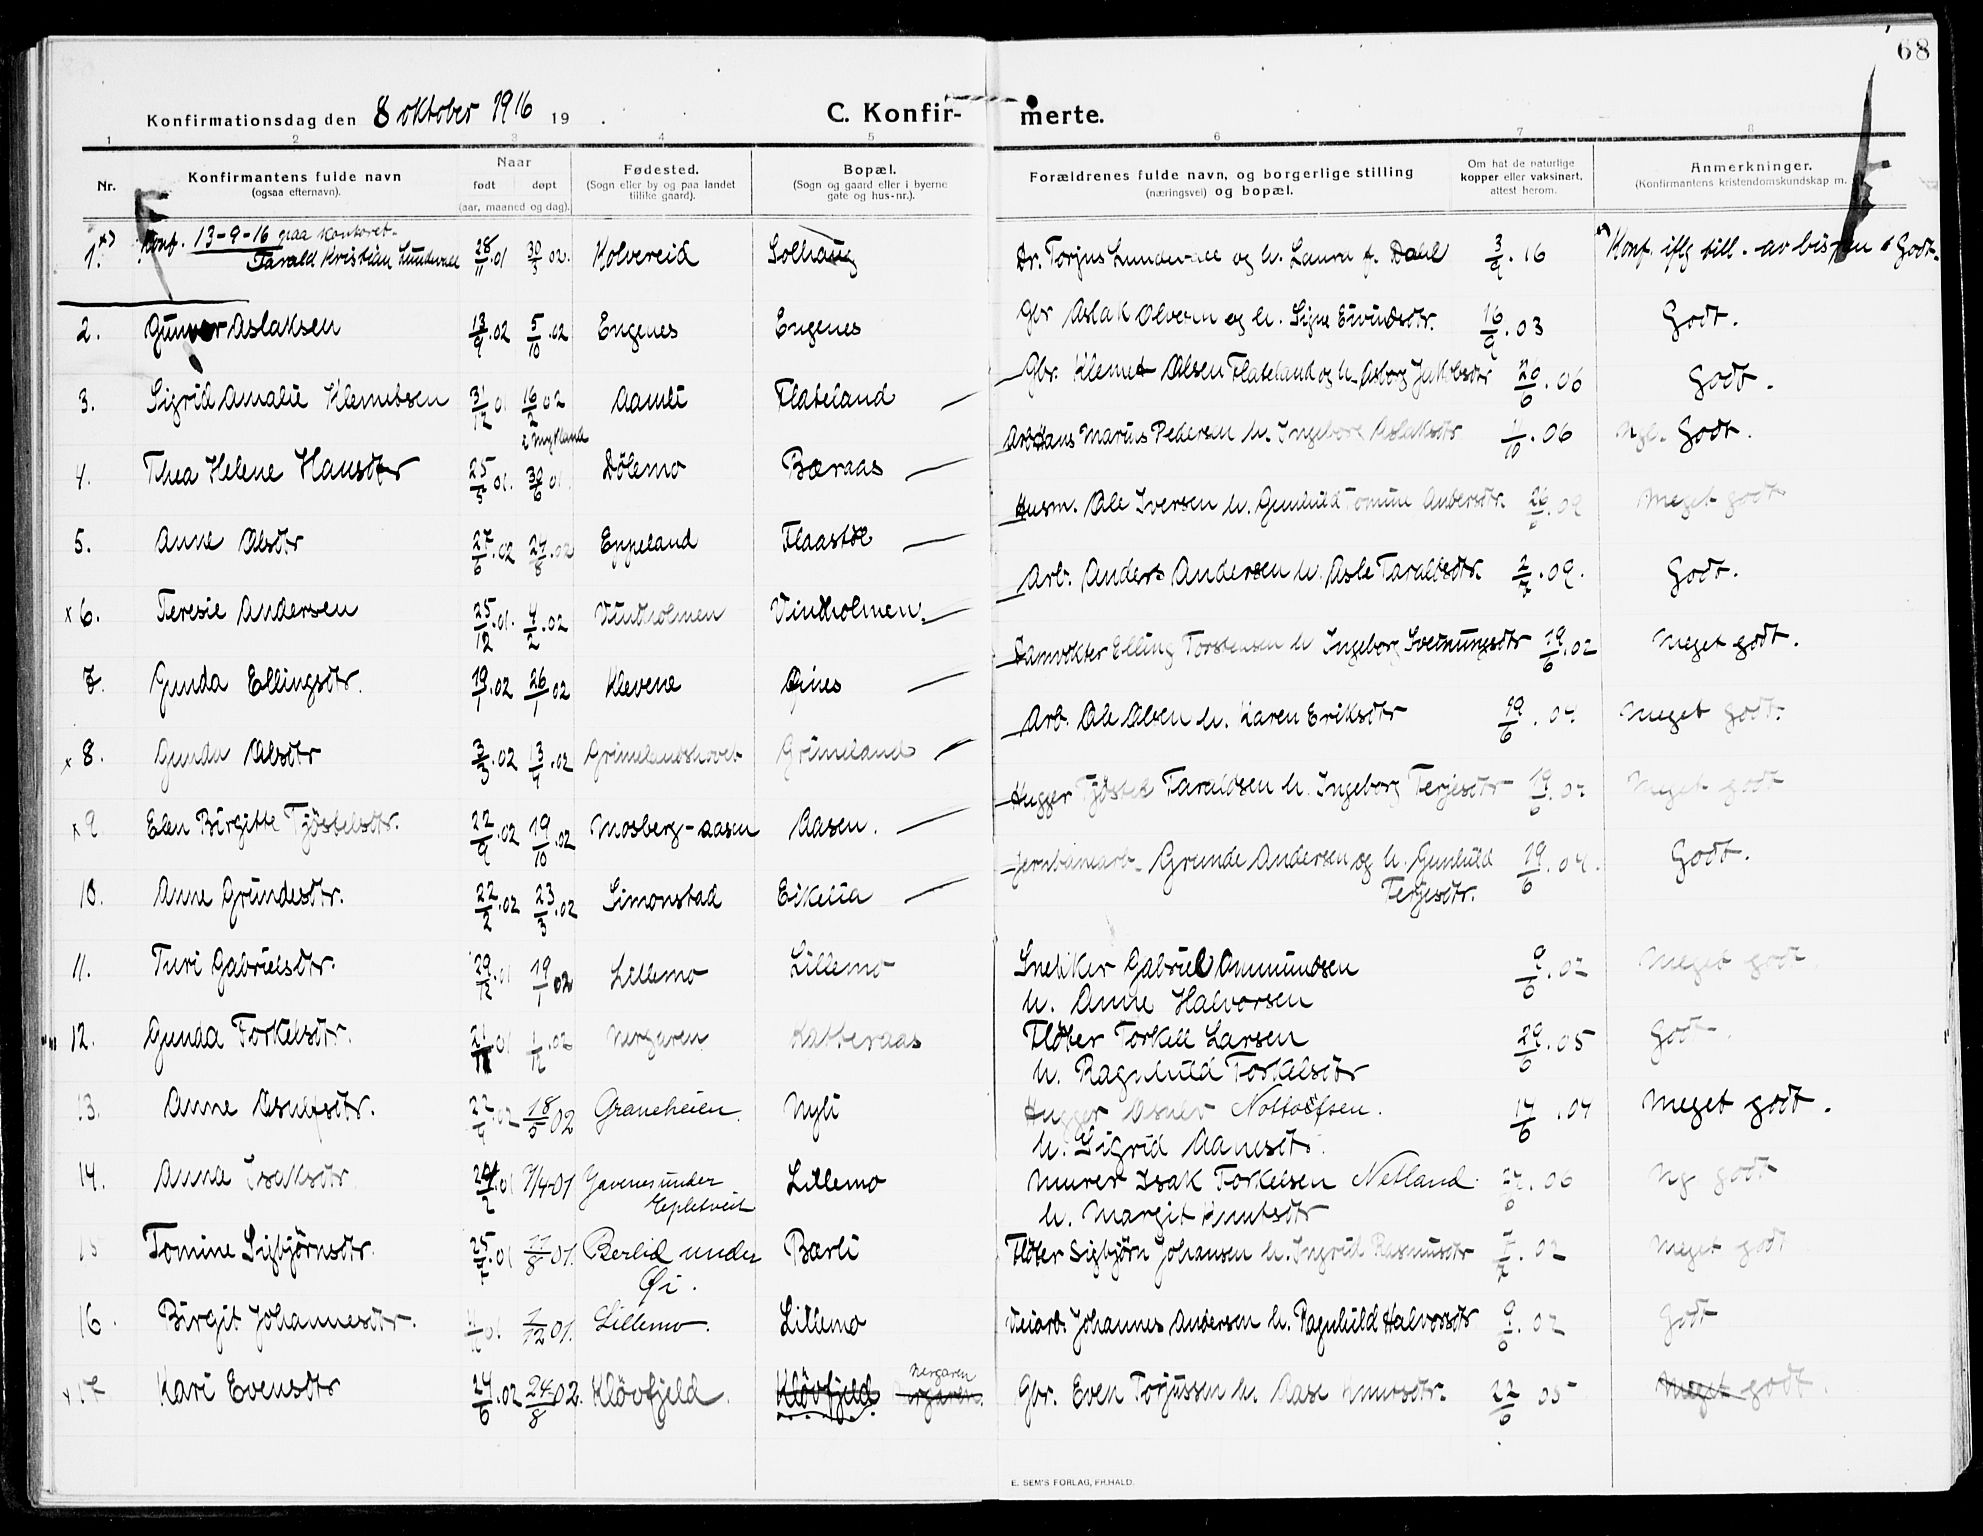 68
Konfirmationsdag den 8 oktober 1916 19 .
C. Konfir- merte.
1 2 3 4 5 6 7 8
Nr.
Konfirmantens fulde navn
(ogsaa efternavn).
Naar
født døpt
(aar, maaned og dag).
Fødested.
(Sogn eller by og paa landet
tillike gaard).
Bopæl.
(Sogn og gaard eller i byerne
gate og hus-nr.).
Forældrenes fulde navn, og borgerlige stilling
(næringsvei) og bopæl.
Om hat de naturlige
kopper eller vaksinert,
attest herom.
Anmerkninger.
(Konfirmantens kristendomskundskap m.
Konf. 13-9-16 paa kontoret.
1. x) Tarald Kristian Lundevall 28/11 01 30/3 02. Kolvereid Solhaug Dr. Torjus Lundevall og h. Laura f. Dahl 3/9. 16 x) Konf. iflg till. av bispen Godt.
2. Gunnar Aslaksen 13/9.02 5/10.02 Engenes Engenes Gbr Aslak Olsen og h. Signe Eivindsdtr. 16/9.03 Godt.
3. Sigrid Amalie Klemetsen 31/12 01 16/2 02 Aamli Flateland Gbr. Klemet Olsen Flateland og h. Asborg Jakobsdtr 26/6.06 Godt.
i Mykland
4. Thea Helene Hansdtr 25/5 01. 30/6 01. Dölemo Bæraas Arb Hans Marius Pedersen h. Ingeborg Aslaksdtr 1/10.06 Ngl. Godt.
5. Anne Olsdtr 27/6.02 24/8.02 Eppeland Flaastöl Husm. Ole Iversen h. Gunhuld Tomine Andersdtr. Meget godt
x 6. Teresie Andersen 25/12.01. 4/2.02 Vindholmen Vindholmen. Arb. Anders Andersen h. Asle Taraldsdtr. 2/7.09. Godt.
7. Gunda Ellingsdtr. 19/1.02 26/1 02 Klevene Öines Damvokter Elling Torstensen h Ingeborg Sveinungsdtr 19/6.02 Meget godt.
x 8. Gunda Olsdtr 3/3.02 13/4.02 Grimelandshovet Grimeland Arb. Ole Olsen h. Karen Eriksdtr 19/6. 07. Meget godt.
x 9 Elen Birgitte Tjöstelsdtr. 22/9.02 19/10.02 Mosberg-aasen Aasen. Hugger Tjöstel Taraldsen h. Ingeborg Terjesdtr Meget godt
10. Anne Grundesdtr. 22/2.02 23/3.02 Simonstad Eikelia Jernbanearb. Grunde Andersen og h. Gunhuld 19/6.04. Godt.
Terjesdtr.
11. Turi Gabrielsdtr. 29/12.01 19/1 02 Lillemo Lillemo Snekker Gabriel Ommundsen 9/6.02 Meget godt
h. Anne Halvorsen
12. Gunda Torkelsdtr. 21/11 01 1/12.02 Nergaren Katteraas Flöter Torkell Larsen 29/6.05 Godt.
h. Ragnhuld Torkelsdtr
13. Anne Osulfsdtr. 22/9.02 18/5 02 Graneheien. Nyli Hugger Osulv Nottolfsen. 17/6.04 Meget godt.
h. Sigrid Aamesdtr.
14. Anna Isaksdtr 7/4-01 Gavenes under Lillemo Murer Isak Torkelsen Netland. 06 Ng godt
Epletveit
h. Margit Knutsdtr
15 Tomine Sigbjörnsdtr. 01 11/8 01. Berlid under Bærli Flöter Sigbjörn Johansen h. Ingrid Rasmusdtr 02 Meget godt
Øi.
16. Birgit Johannesdtr. 01 1/12 01. Lillemo. Lillemo Veiarb. Johannes Andersen h. Ragnhuld Halvorsdtr 9/6.02 Godt
x 17 Kari Evensdtr 24/6.02 24/8 02. Klövfjeld. Klövfjeld Nergaren. Nergaren Gbr. Even Torjussen h. Aase Knutsdtr. 22/6 05 Meget godt.
E. SEM'S FORLAG, FR.HALD.